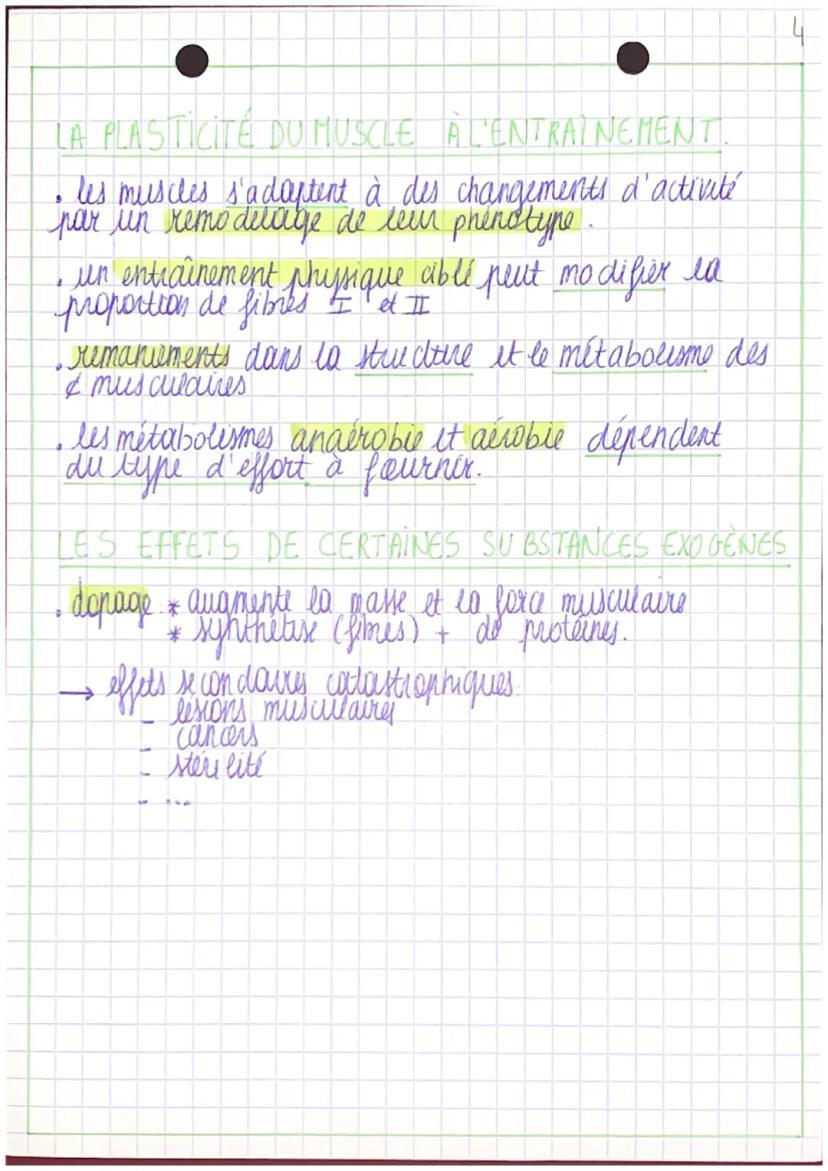 4
LA PLASTICITÉ DU MUSCLE À L'ENTRAÎNEMENT.
. les muscles s'adaptent à des changements d'activité
par un remodelage de leur phénotype.
. un entraînement physique ciblé peut modifier la
proportion de fibres I et II
. remaniements dans la structure et le métabolisme des
¢ musculaires
. les métabolismes anaérobie et aérobie dépendent
du type d'effort à fournir.
LES EFFETS DE CERTAINES SUBSTANCES EXOGÈNES
. dopage : * augmente la masse et la force musculaire
* synthétise (fibres) + de protéines.
→ effets secondaires catastrophiques:
- lésions musculaires
- cancers
- stérilité
- ...